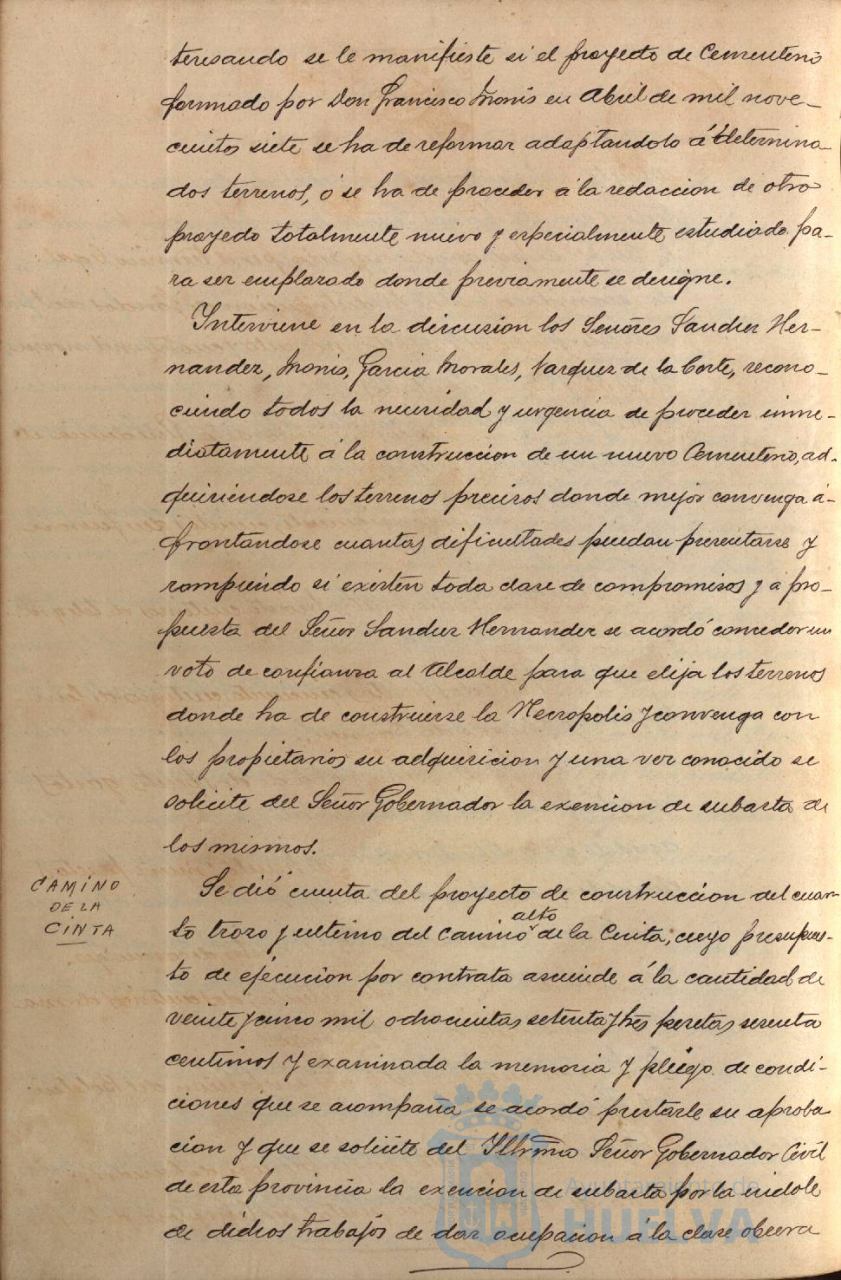 teresando se le manifieste si el proyecto de Cementerio
formado por Don Francisco Monis en Abril de mil nove-
cientos siete se ha de reformar adaptandolo á determina-
dos terrenos, ó se ha de proceder á la redaccion de otro
proyecto totalmente nuevo y especialmente estudiado pa-
ra ser emplazado donde previamente se designe.
Interviene en la discusion los Señores Sanchez Her-
nandez, Monis, Garcia Morales, Vazquez de la Corte, recono-
ciendo todos la necesidad y urgencia de proceder inme-
diatamente á la construccion de un nuevo Cementerio, ad-
quiriéndose los terrenos precisos donde mejor convenga á-
frontándose cuantas dificultades puedan presentarse y
rompiendo si existen toda clase de compromisos y a pro-
puesta del Señor Sanchez Hernandez se acordó conceder un
voto de confianza al Alcalde para que elija los terrenos
donde ha de construirse la Necropolis y convenga con
los propietarios su adquisicion y una vez conocido se
solicite del Señor Gobernador la exencion de subasta de
los mismos.
CAMINO
DE LA
CINTA
Se dió cuenta del proyecto de construccion del cuar-
to trozo y ultimo del Camino alto de la Cinta, cuyo presupues-
to de ejecucion por contrata asciende á la cantidad de
veinte y cinco mil ochocientas setenta y tres pesetas sesenta
centimos y examinada la memoria y pliego de condi-
ciones que se acompaña se acordó prestarle su aproba
cion y que se solicite del Iltrmo Señor Gobernador Civil
de esta provincia la exencion de subasta por la indole
de dichos trabajos de dar ocupacion á la clase obrera
Ayuntamiento de
HUELVA